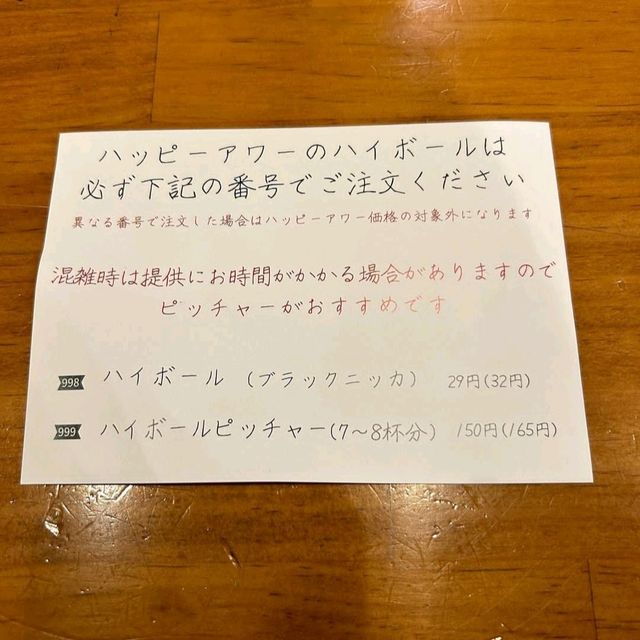 ハッピーアワーのハイボールは
必ず下記の番号でご注文ください
異なる番号で注文した場合はハッピーアワー価格の対象外になります
混雑時は提供にお時間がかかる場合がありますので
ピッチャーがおすすめです
998 ハイボール (ブラックニッカ) 29円(32円)
999 ハイボールピッチャー(7~8杯分) 150円(165円)